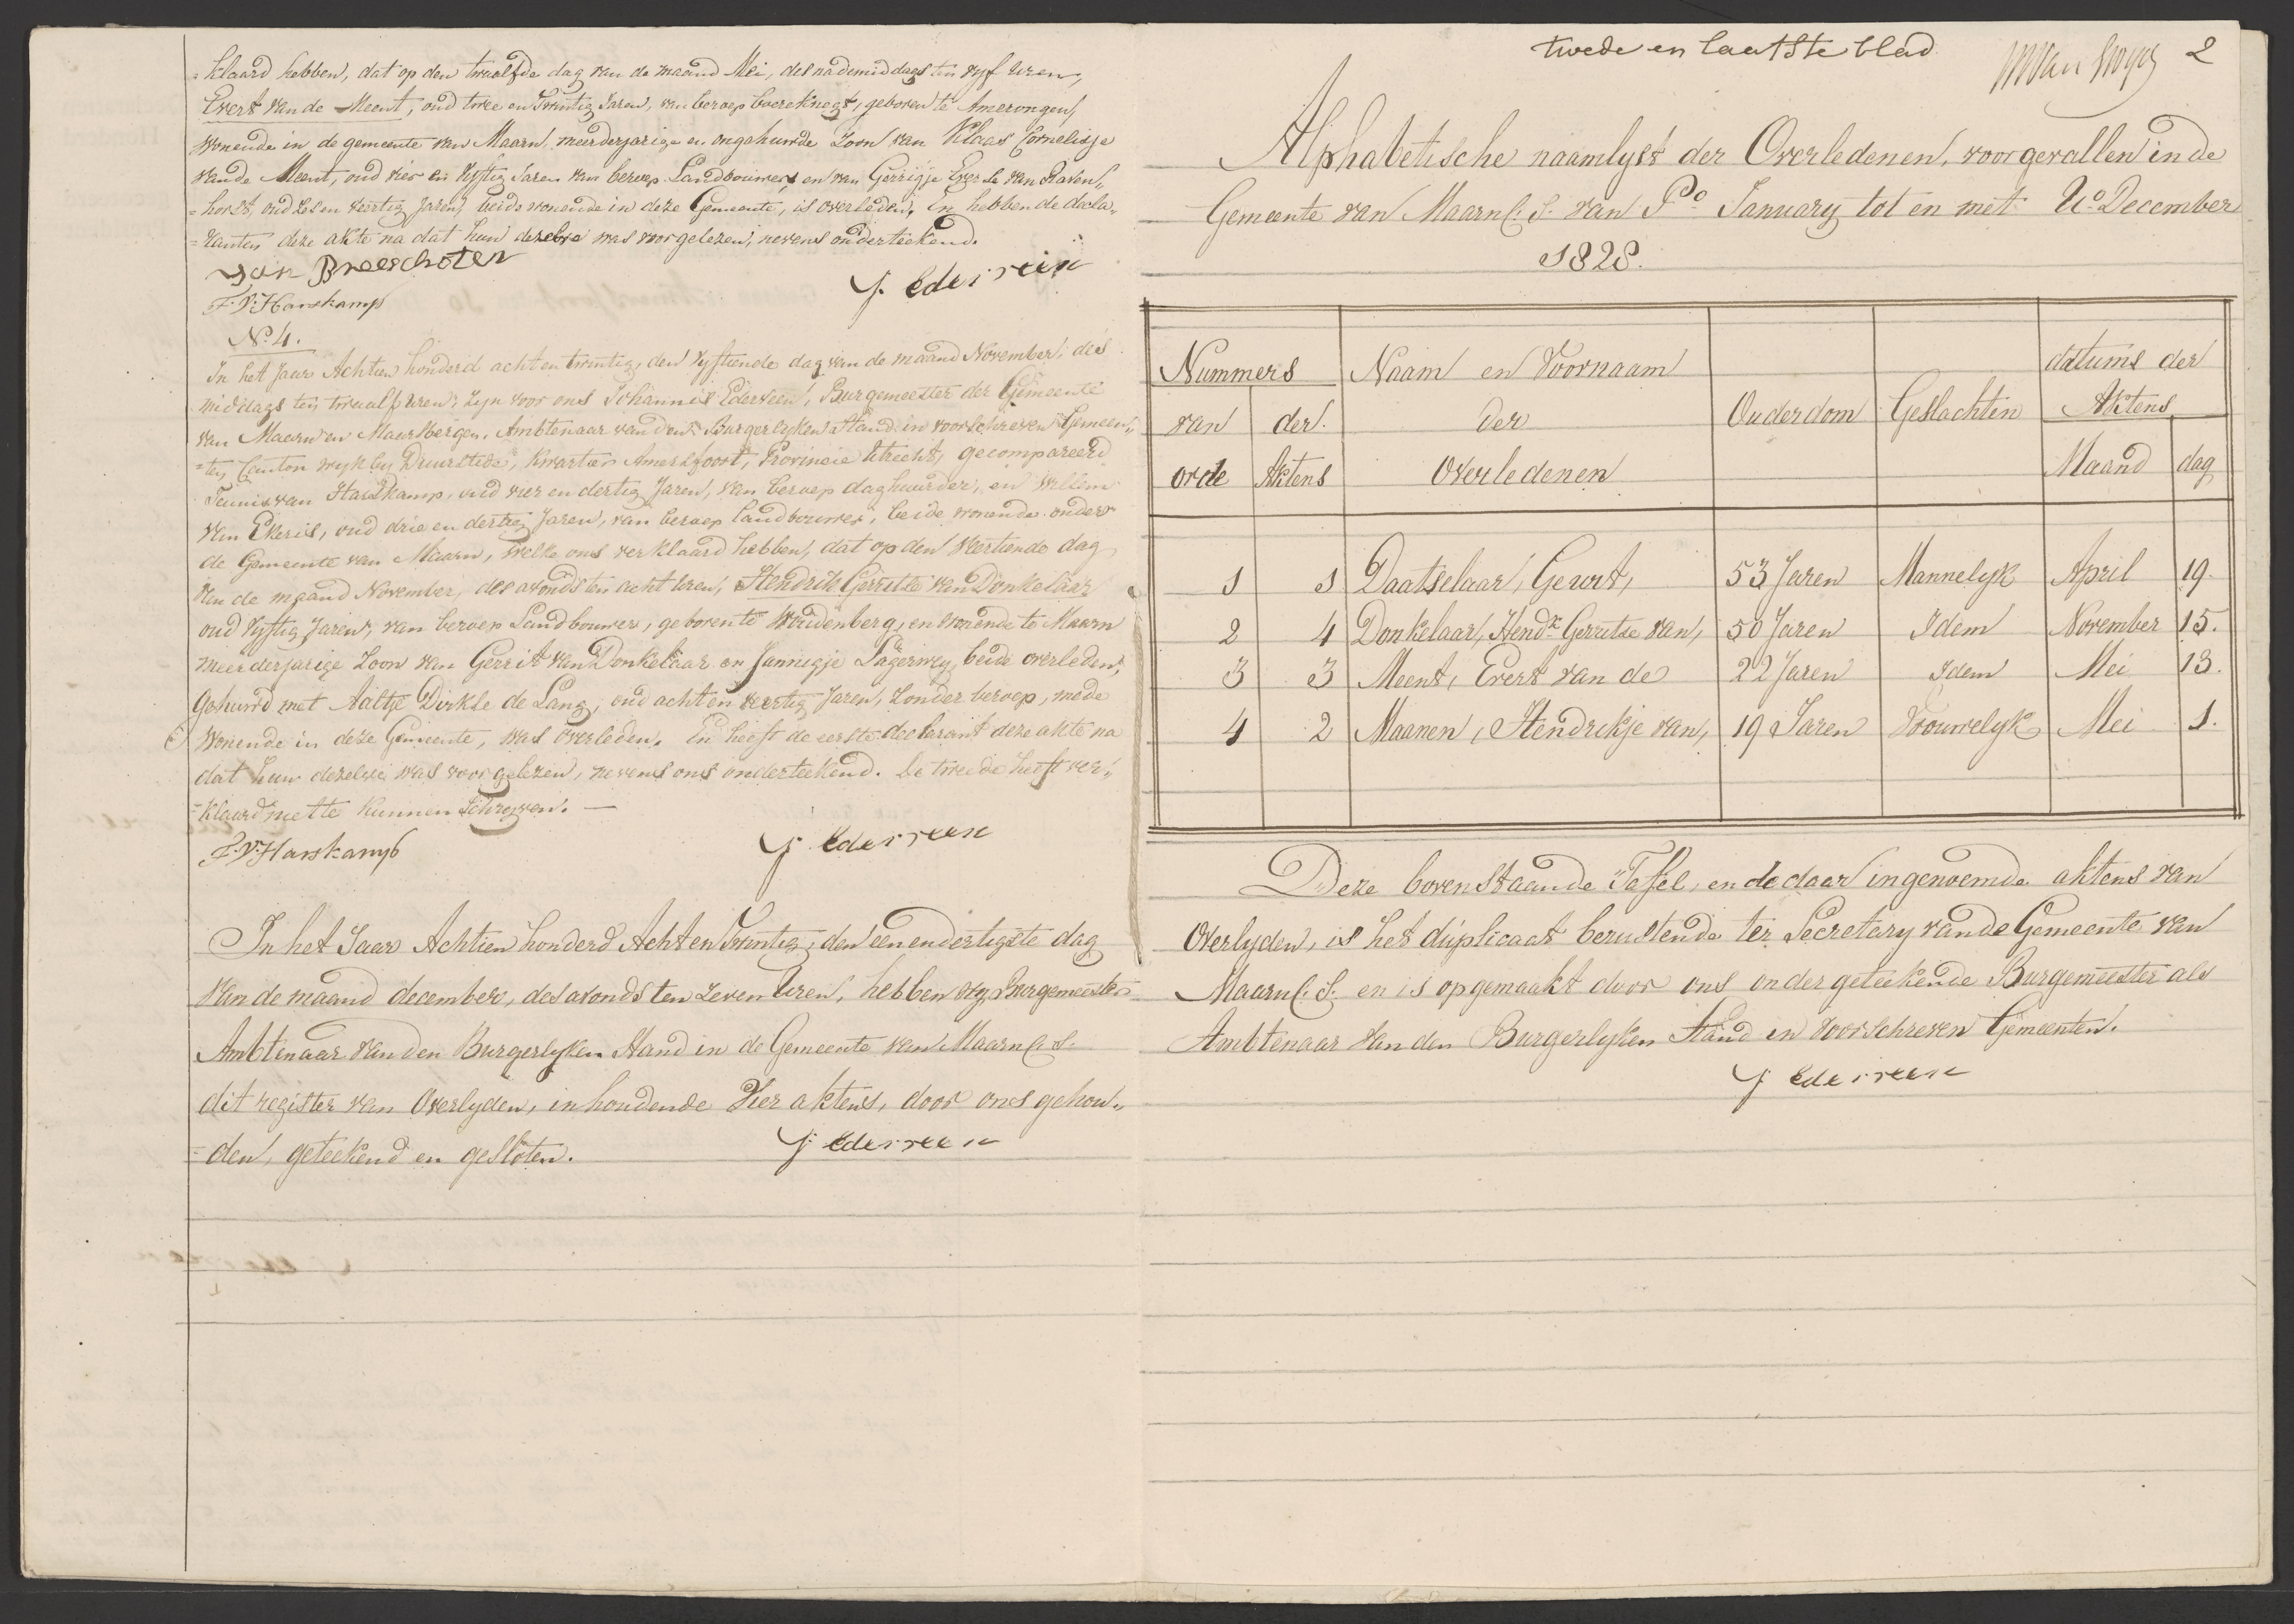 =klaard hebben, dat op den twaalfde dag van de maand Mei, des nademiddags ten vyf uren,
Evert van de Meent, oud twee en twintig Jaren, van beroep boereknegt, geboren te Amerongen,
wonende in de gemeente van Maarn, meerderjarige en ongehuwde Zoon van Klaas Cornelisje
van de Meent, oud vier en vyftig Jaren van beroep Landbouwer, en van Gerrigje Everse van Raven„
=horst, oud zes en veertig Jaren, beide wonende in deze Gemeente, is overleden. En hebben de decla„
=ranten deze akte na dat hun dezelve was voorgelezen, nevens onderteekend.
van Breeschoten
T. V. Harskamp
J. Ederveen
No. 4.
In het Jaar Achtien honderd acht en twintig, den vyftiende dag van de maand November, des
middags ten twaalf uren, zyn voor ons Johannis Ederveen, Burgemeester der Gemeente
van Maarn en Maarsbergen, Ambtenaar van den Burgerlyken Stand in voorschreven Gemeen„
=ten, Canton wyk by Duurstede, Kwartier Amersfoort, Provincie Utrecht, gecompareerd
Teunis van Harskamp, oud vier en dertig Jaren, van beroep daghuurder, en Willem
van Ekeris, oud drie en dertig Jaren, van beroep landbouwer, beide wonende onder
de Gemeente van Maarn, welke ons verklaard hebben, dat op den veertiende dag
van de maand November, des avonds ten acht uren, Hendrik Gerritse van Donkelaar
oud vyftig Jaren, van beroep Landbouwer, geboren te Woudenberg, en wonende te Maarn
meerderjarige Zoon van Gerrit van Donkelaar en Jannigje Lagerwey, beide overleden,
Gehuwd met Aaltje Dirkse de Lang, oud acht en veertig Jaren, zonder beroep, mede
wonende in deze Gemeente, was overleden. En heeft de eerste declarant deze akte na
dat hun dezelve was voorgelezen, nevens ons onderteekend. De tweede heeft ver„
=klaard niet te kunnen schryven. —
T. V. Harskamp
J. Ederveen
In het Jaar Achtien honderd Acht en Twintig, den een en dertigste dag
van de maand december, des avonds ten zeven uren, hebben wy Burgemeester
Ambtenaar van den Burgerlyken Stand in de Gemeente van Maarn C. S.
dit register van Overlyden, inhoudende Vier aktens, door ons gehou„
=den, geteekend en gesloten.
J. Ederveen
twede en laatste blad
2
Alphabetische naamlyst der Overledenen, voorgevallen in de
Gemeente van Maarn C. S. van Po. January tot en met Uo. December
1828.
Nummers | Naam en Voornaam | | | datums der
van | der | Der | Ouderdom | Geslachten | Aktens
orde | Aktens | Overledenen | | | Maand | dag
1 | 1 | Daatselaar, Geurt, | 53 Jaren | Mannelyk | April | 19.
2 | 4 | Donkelaar, Hendk Gerritse van, | 50 Jaren | Idem | November | 15.
3 | 3 | Meent, Evert van de | 22 Jaren | Idem | Mei | 13.
4 | 2 | Maanen, Hendrikje van, | 19 Jaren | Vrouwelyk | Mei | 1.
Deze bovenstaande Tafel, en de daar in genoemde aktens van
Overlyden, is het duplicaat berustende ter Secretary van de Gemeente van
Maarn C. S. en is opgemaakt door ons ondergeteekende Burgemeester als
Ambtenaar van den Burgerlyken Stand in voorschreven Gemeenten.
J. Ederveen